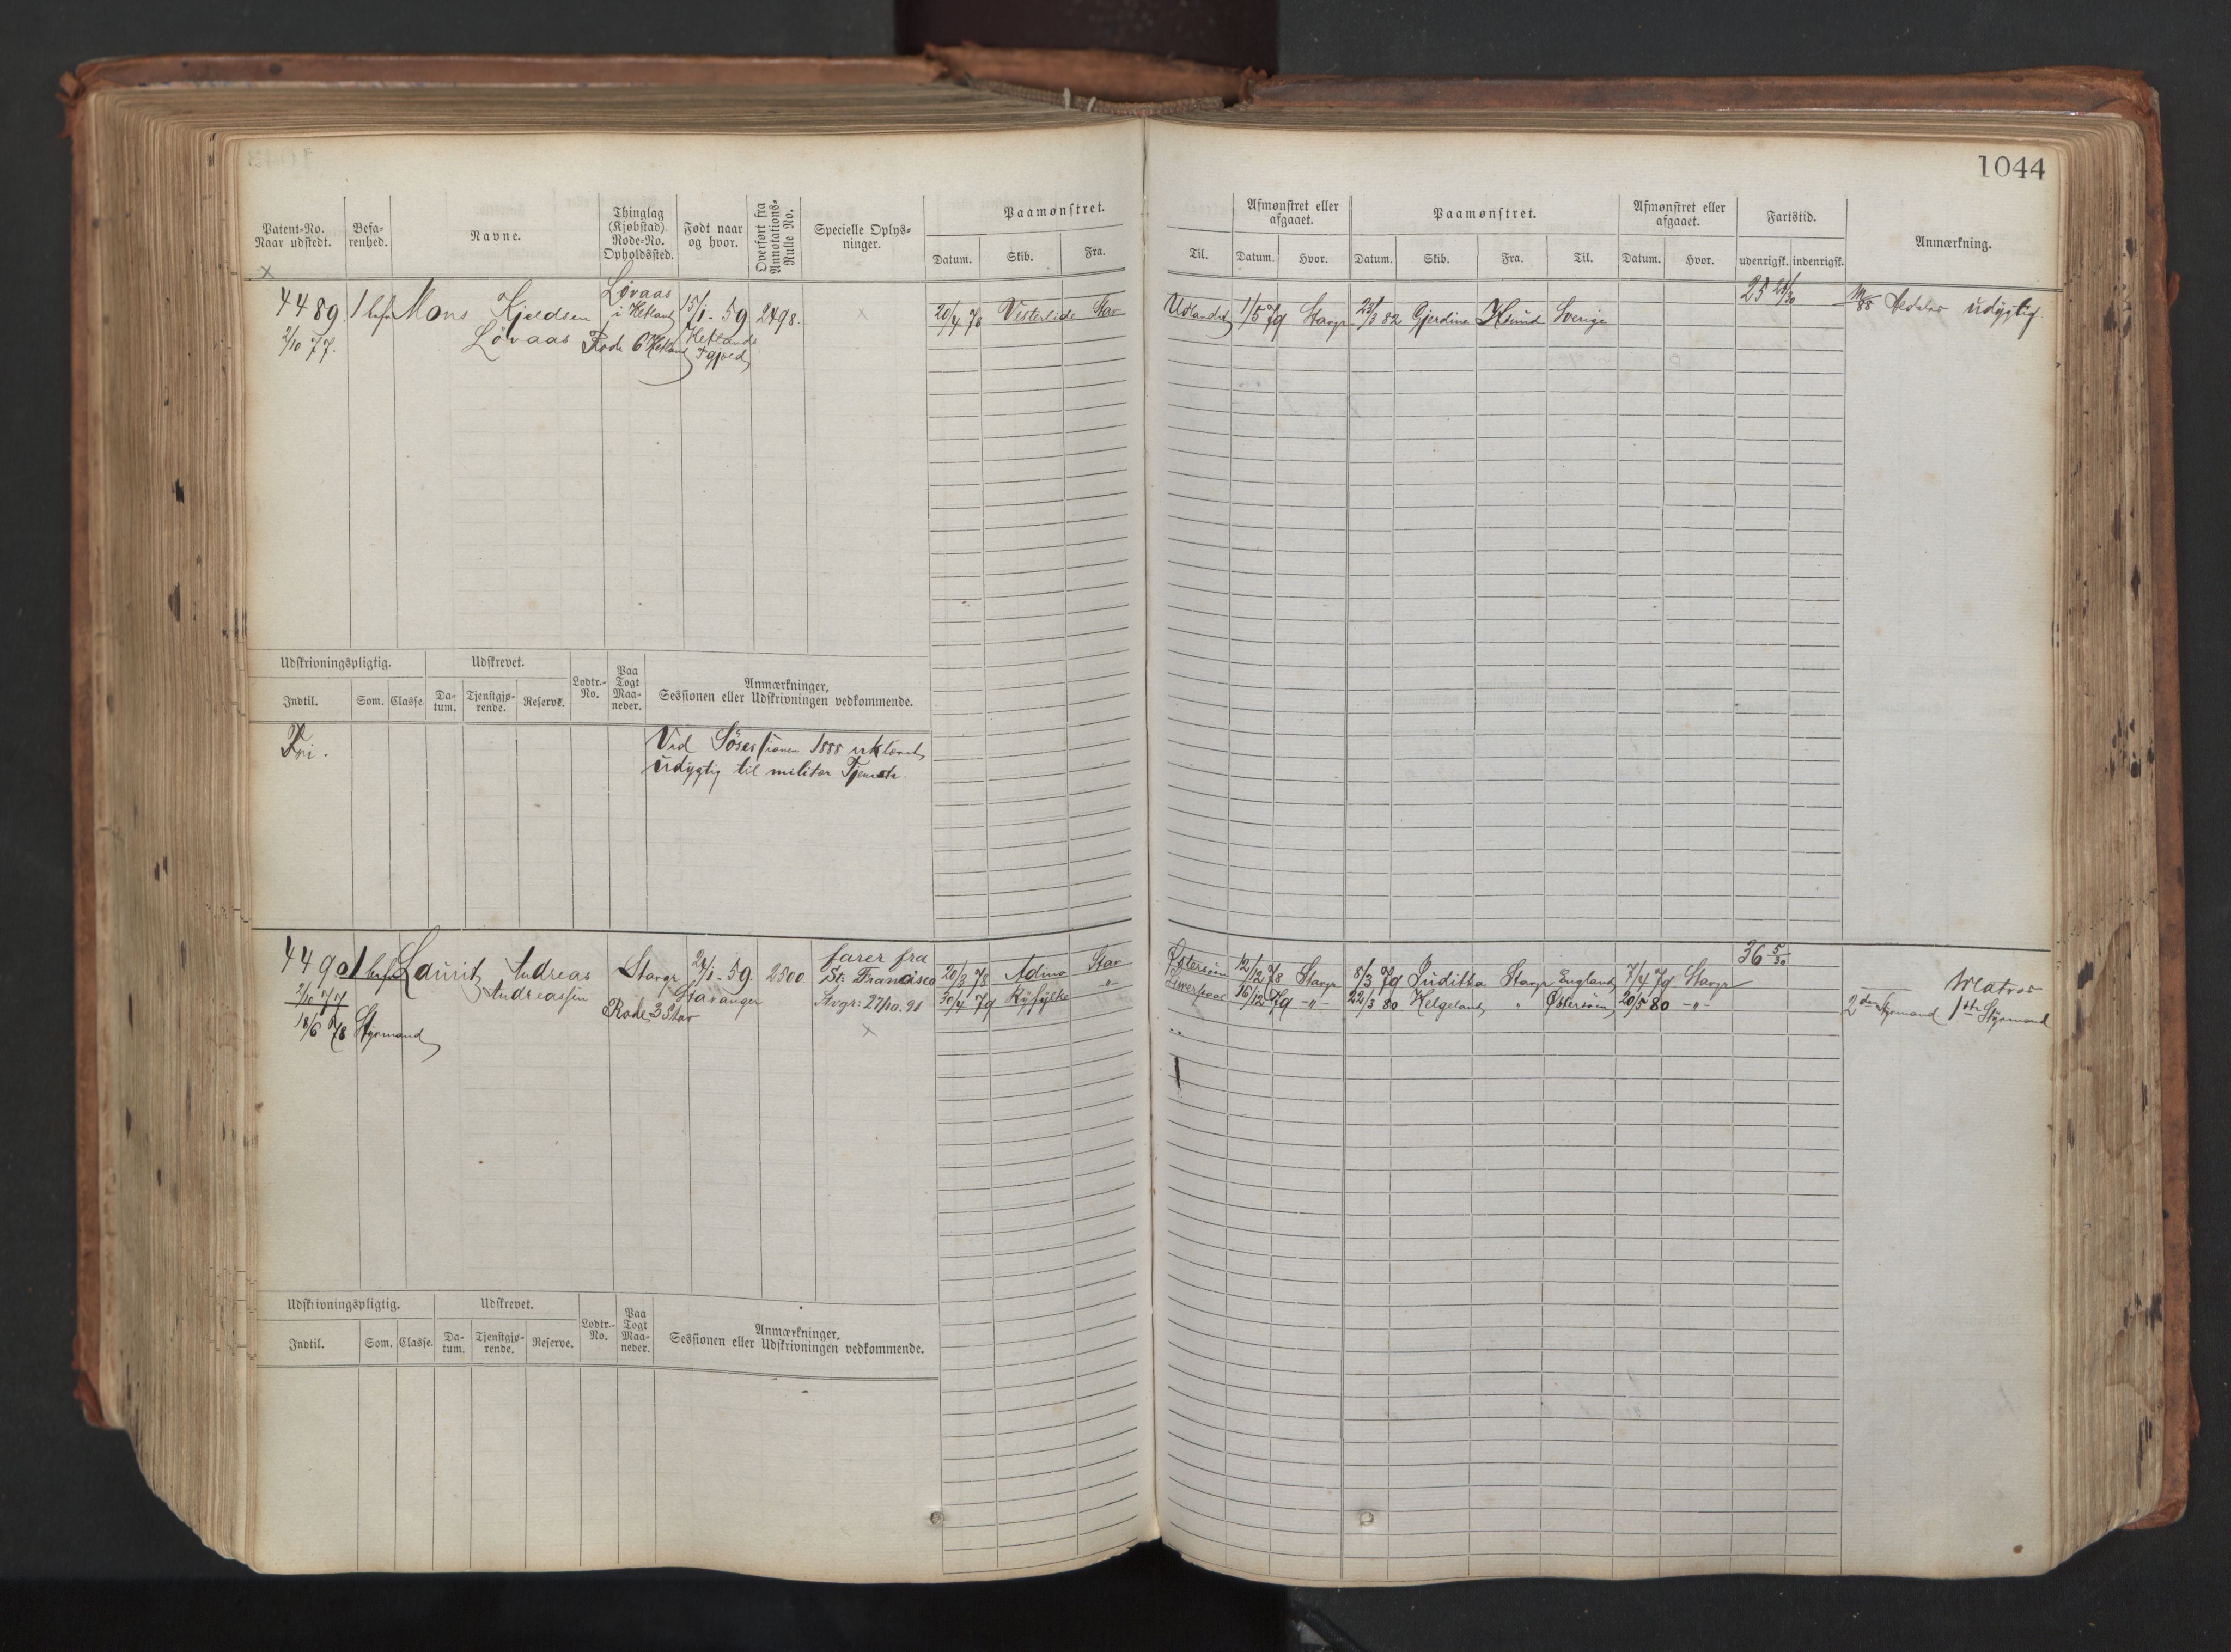 1044
Patent-No. Naar udstedt.
Befarenhed.
Navne.
Thinglag (Kjøbstad) Rode-No. Opholdssted.
Født naar og hvor.
Overført fra Annotations-Rulle No.
Specielle Oplysninger.
Paamønstret.
Datum. Skib. Fra.
Til.
Afmønstret eller afgaaet.
Datum. Hvor.
Paamønstret.
Datum. Skib. Fra. Til.
Afmønstret eller afgaaet.
Datum. Hvor.
Fartstid.
udenrigsk. indenrigsk.
Anmærkning.
x
4489. 1 bef. Mons Kjeldsen
Løvaas
2/10 77.
Løvaas
i Hetland
Rode 6 Hetland
15/1-59
Hetlands
Pgjeld
2498.
x
20/4 78 Vesterlide Stav
Udlandet 1/5 79 Stavgr 82 Gjerdine Sverige
25 /30
/85 udygtig.
Udskrivningspligtig. Udskrevet. Lodtr.-No. Paa Togt Maaneder. Anmærkninger, Sessionen eller Udskrivningen vedkommende.
Indtil. Som. Classe. Datum. Tjenstgjørende. Reserve.
Fri.
Ved Sösessionen 1885 erklæret
udygtig til militær Tjeneste.
4490 1 bef. Laurits Andreas
Andreassen
2/10 77
18/6 78 Styrmand
Stavgr
Rode 3 Stav
24/1-59.
Stavanger
2500.
farer fra
St: Francisco
Avgr: 27/10.91
x
20/3 78 Adina Stav
30/4 79 Ryfylke "
Østersøen 12/12 78 Stavgr 8/3 79 Juditha Stavgr England 7/4 79 Stavgr
Liverpool 16/12 79 -"- 22/3 80 Helgeland " Østersøen 20/5 80 -"-
36 5/30
Matros
2den Styrmand 1ste Styrmand
Udskrivningspligtig. Udskrevet. Lodtr.-No. Paa Togt Maaneder. Anmærkninger, Sessionen eller Udskrivningen vedkommende.
Indtil. Som. Classe. Datum. Tjenstgjørende. Reserve.